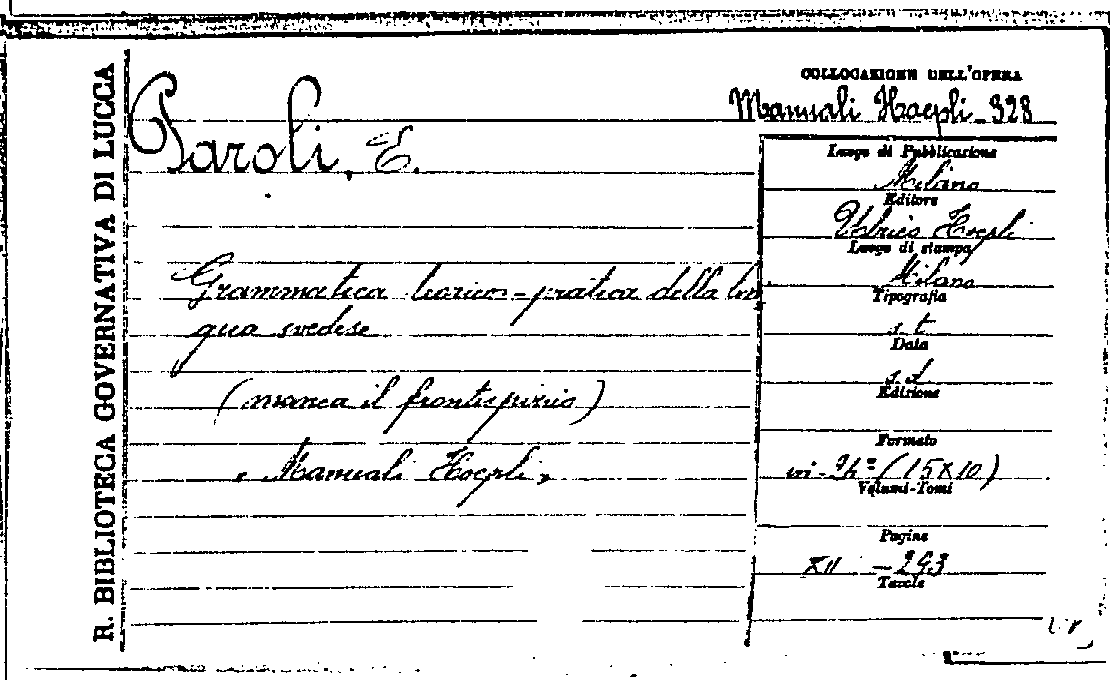 R. BIBLIOTECA GOVERNATIVA DI LUCCA
Paroli, E.
Grammatica teorico-pratica della lin
gua svedese
(manca il frontispizio)
"Manuali Hoepli"
COLLOCAZIONE DELL'OPERA
Manuali Hoepli 328
Luogo di Pubblicazione
Milano
Editore
Ulrico Hoepli
Luogo di stampa
Milano
Tipografia
s. t.
Data
s. d.
Edizione
Formato
(15x10)
Volumi-Tomi
Pagine
XII - 293
Tavole